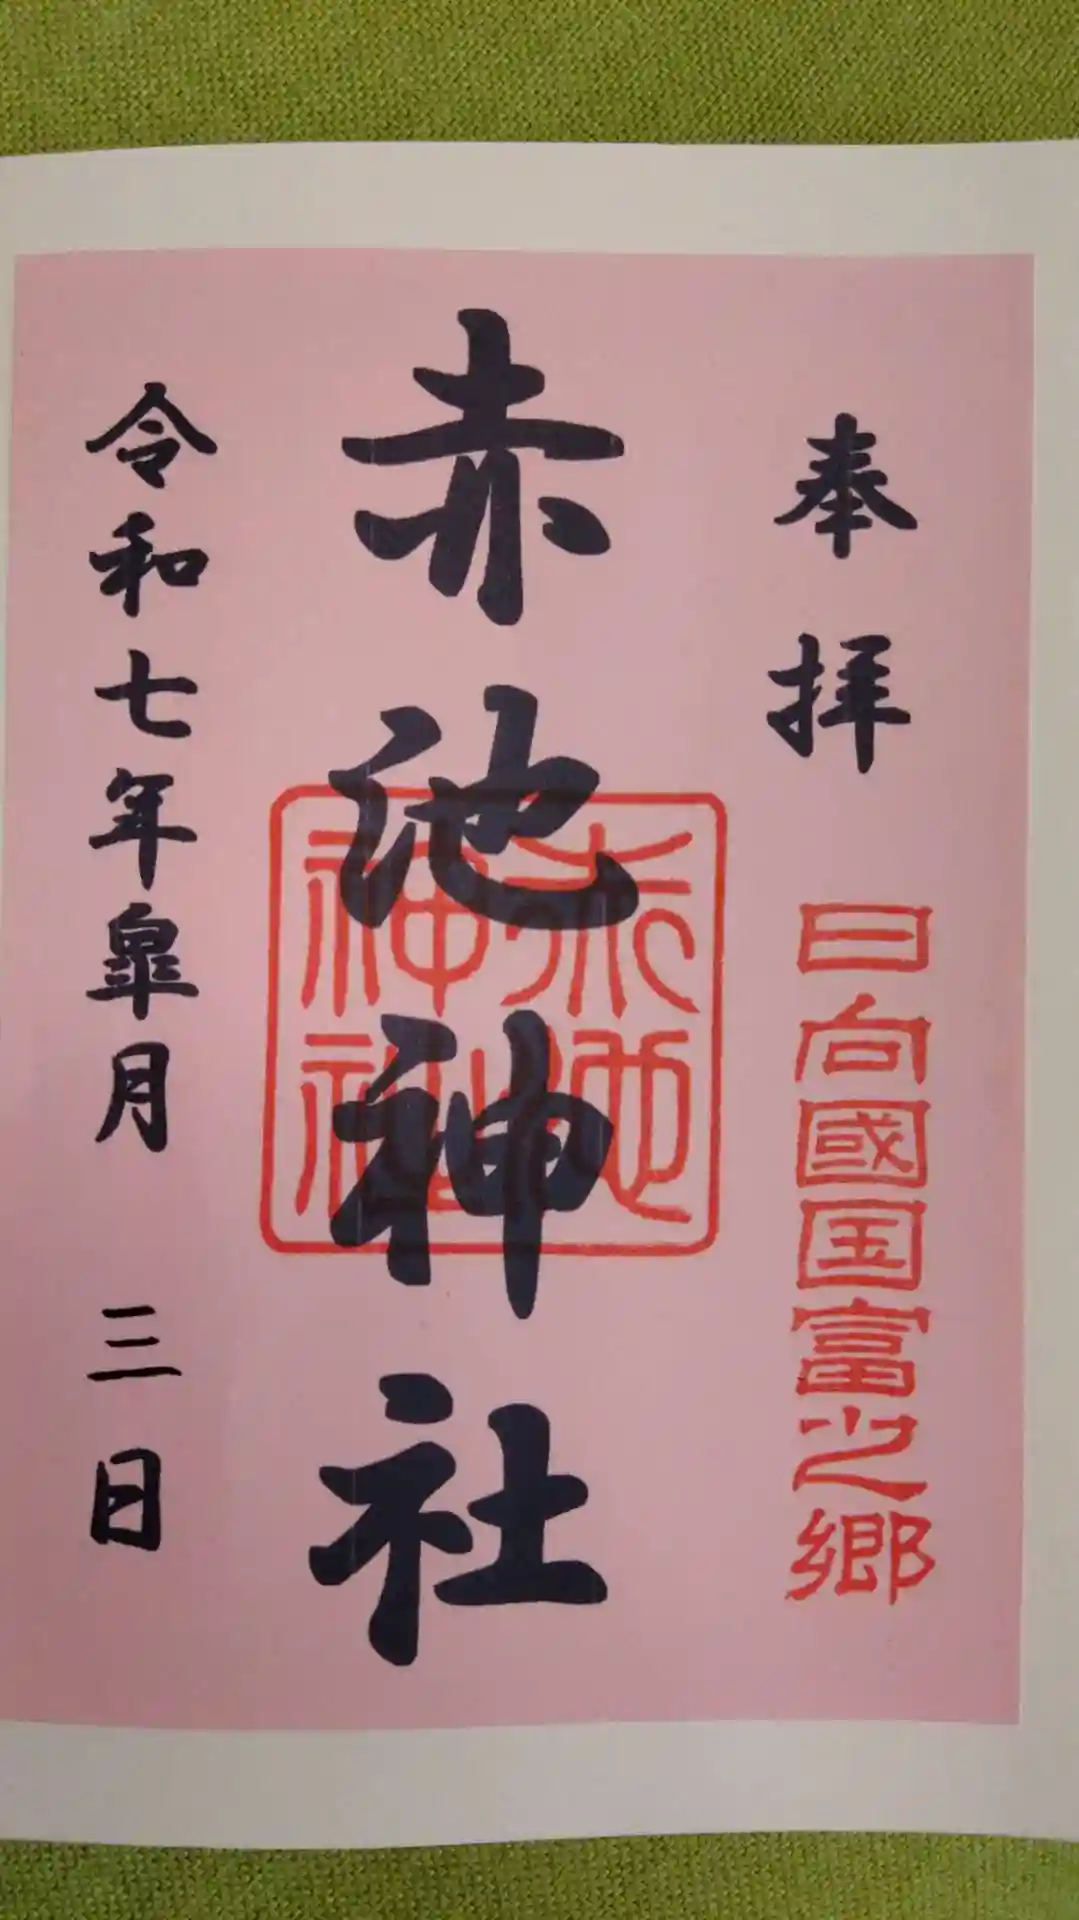 奉拝
日向國国富之郷
赤池神社
赤池神社
令和七年皐月三日